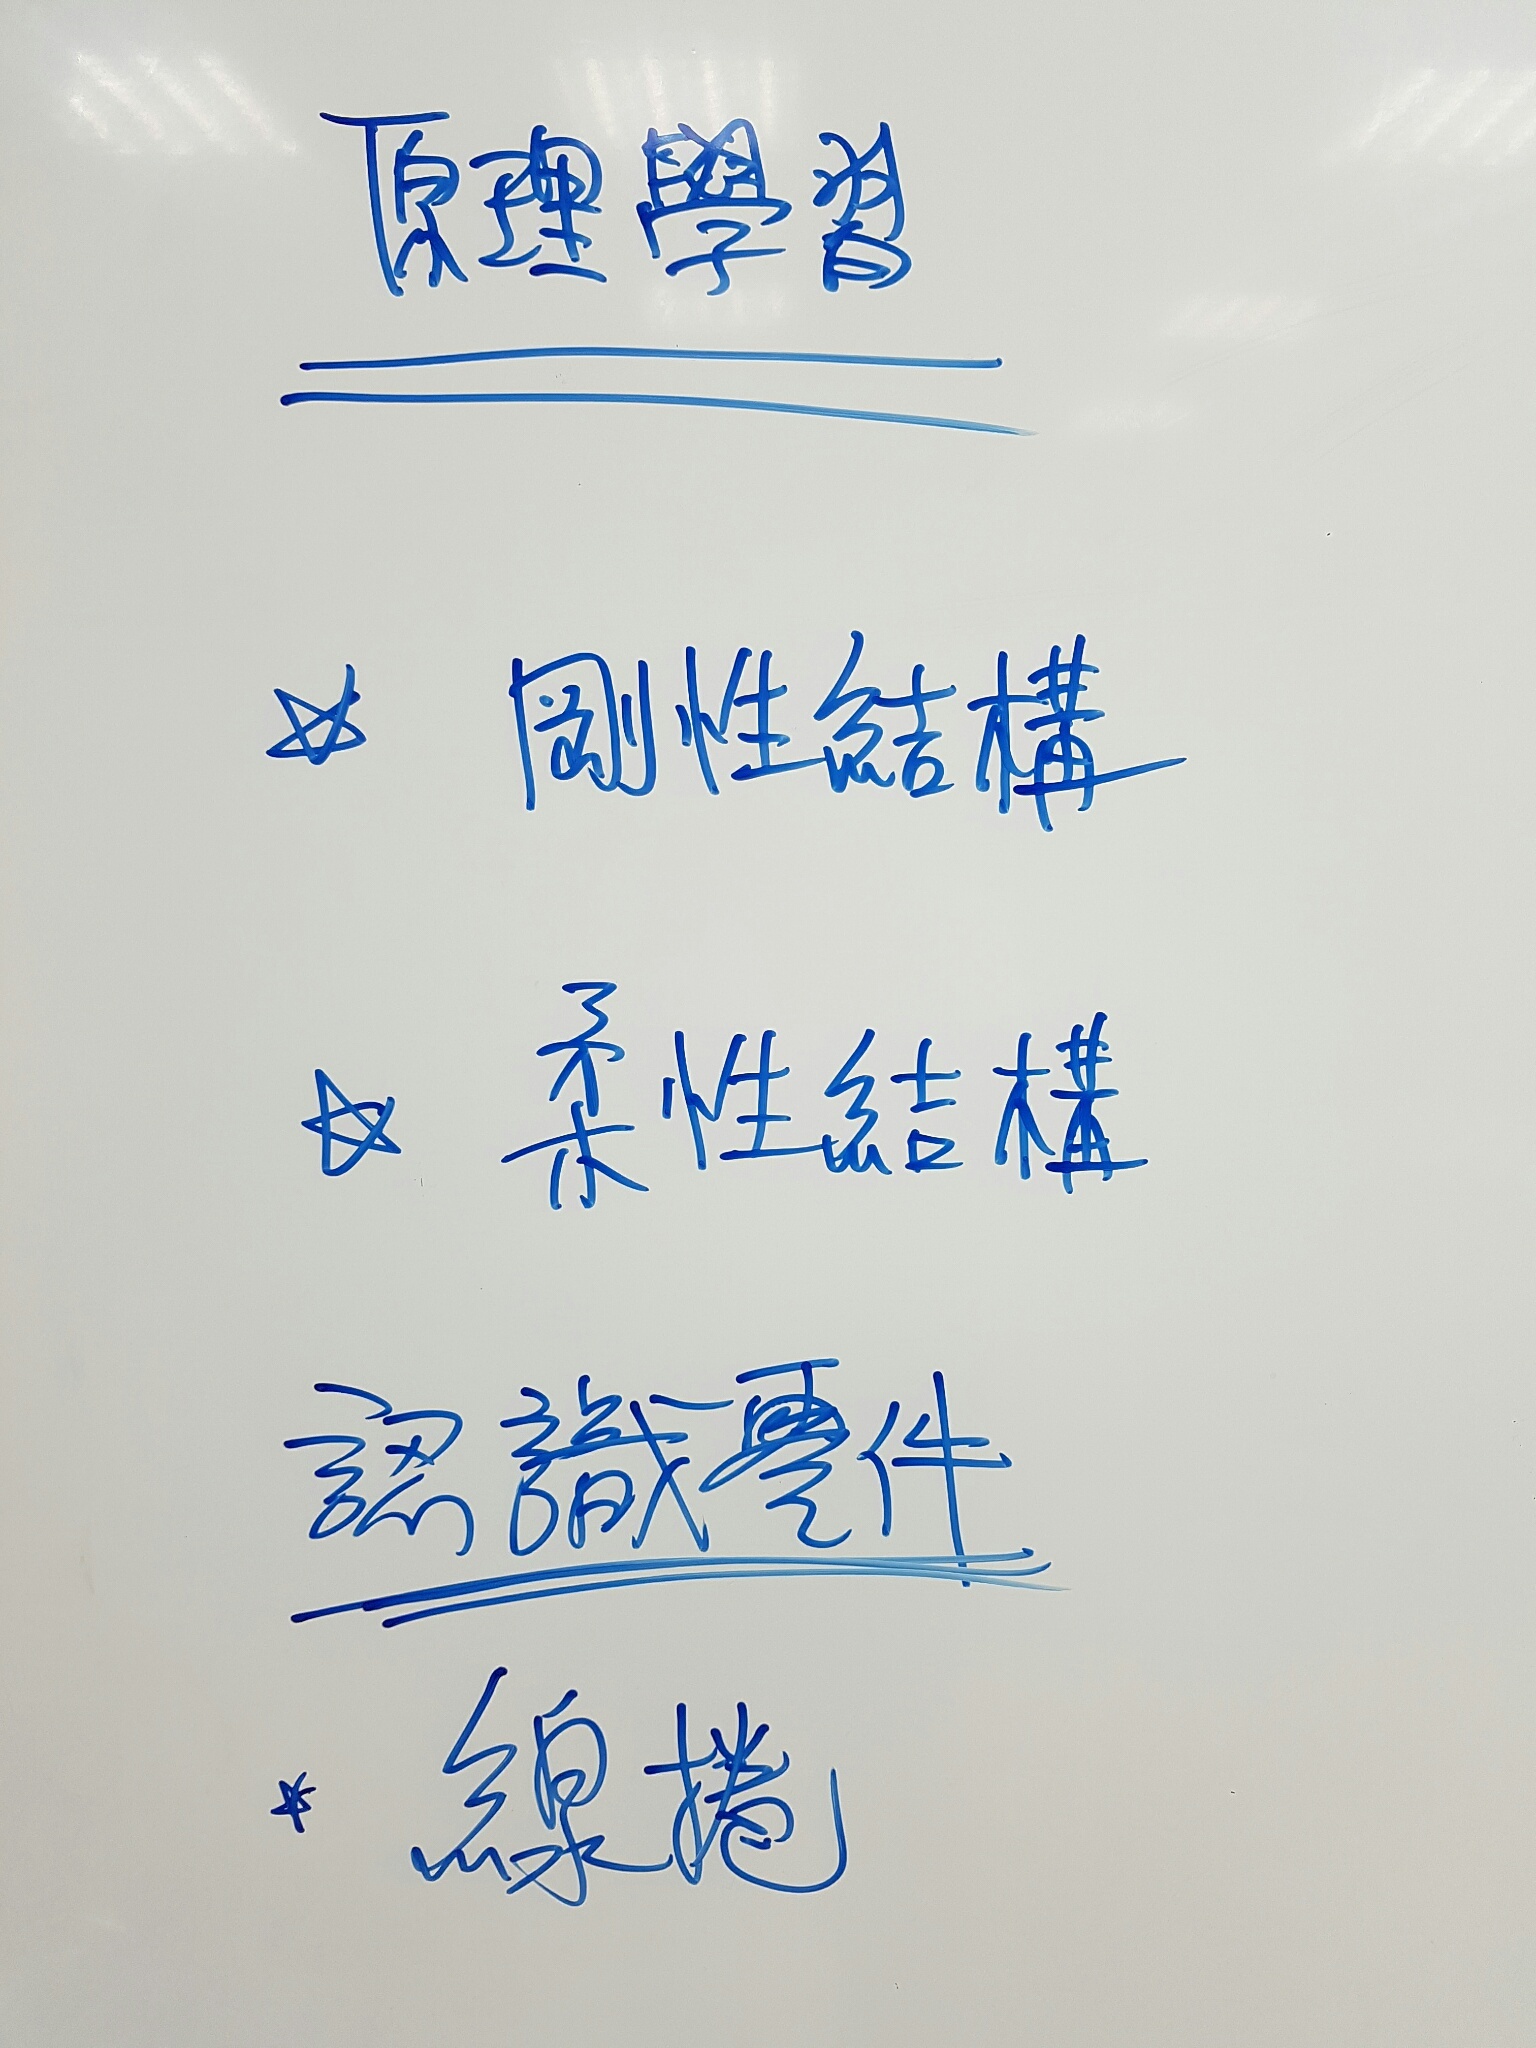 原理學習
☆ 剛性結構
☆ 柔性結構
認識零件
☆ 線捲